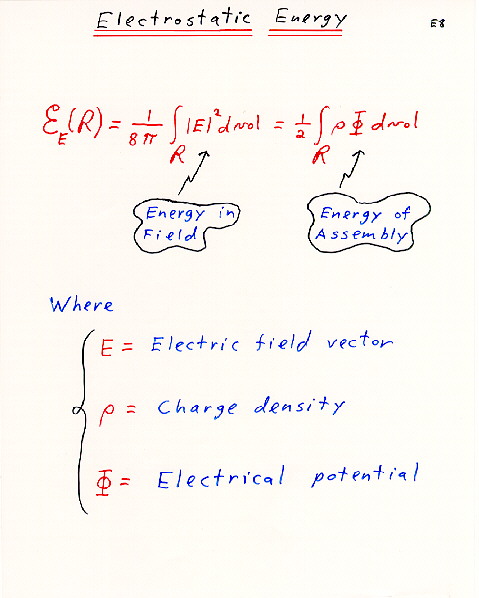 Electrostatic Energy
E8
ℰ_E(R) = 1/8π ∫_R |E|² dvol = 1/2 ∫_R ρ Φ dvol
Energy in
Field
Energy of
Assembly
Where
E = Electric field vector
ρ = Charge density
Φ = Electrical potential